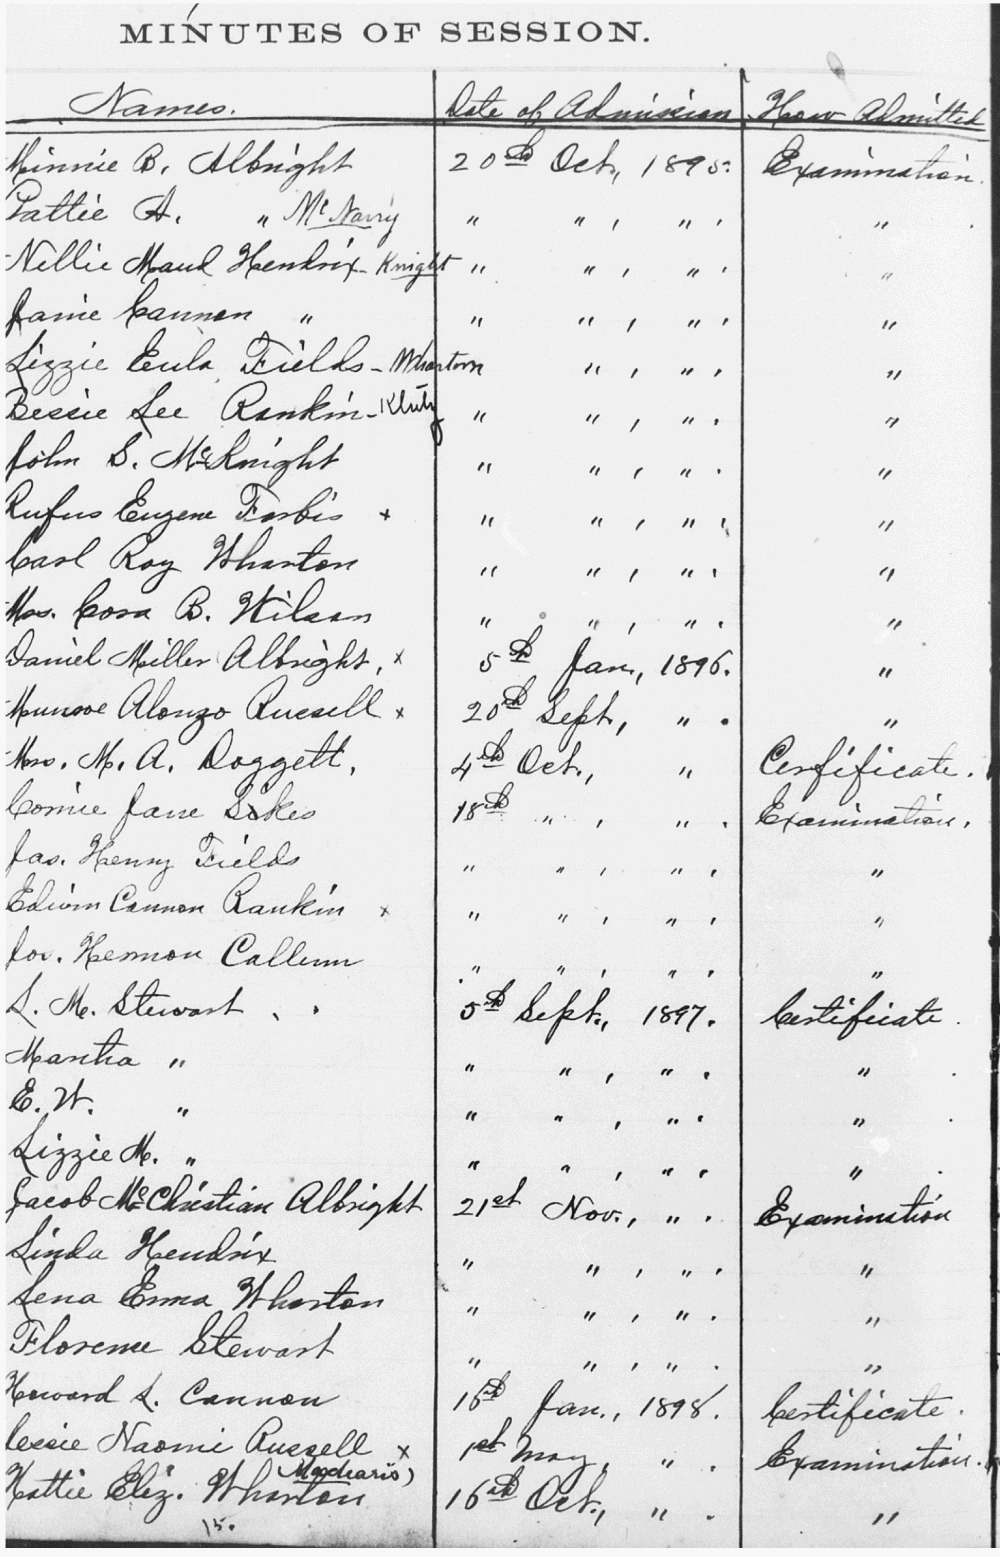 MINUTES OF SESSION.
Names. Date of Admission How Admitted
Minnie B. Albright 20th Oct., 1895. Examination.
Pattie A. " McNairy " " , " . "
Nellie Maud Hendrix - Knight " " , " . "
Janie Cannon " " " , " . "
Lizzie Eula Fields - Wharton " , " . "
Bessie Lee Rankin - Klutz " " , " . "
John S. McKnight " " , " . "
Rufus Eugene Forbis x " " , " . "
Carl Roy Wharton " " , " . "
Mrs. Cora B. Wilson " " , " . "
Daniel Miller Albright, x 5th Jan., 1896. "
Munroe Alonzo Russell x 20th Sept., " . "
Mrs. M. A. Doggett, 4th Oct., " Certificate.
Cornie Jane Sikes 18th " , " . Examination.
Jas. Henry Fields " " , " . "
Edwin Cannon Rankin x " " , " . "
Jos. Hermon Callum " " , " . "
L. M. Stewart 5th Sept., 1897. Certificate.
Martha " " " , " . "
E. W. " " " , " . "
Lizzie M. " " " , " . "
Jacob McChristian Albright 21st Nov., " . Examination
Linda Hendrix " " , " . "
Lena Emma Wharton " " , " . "
Florence Stewart " " , " . "
Howard L. Cannon 16th Jan., 1898. Certificate.
Cessie Naomi Russell x 1st May, " . Examination.
Hattie Eliz. Wharton 16th Oct., " . "
15.